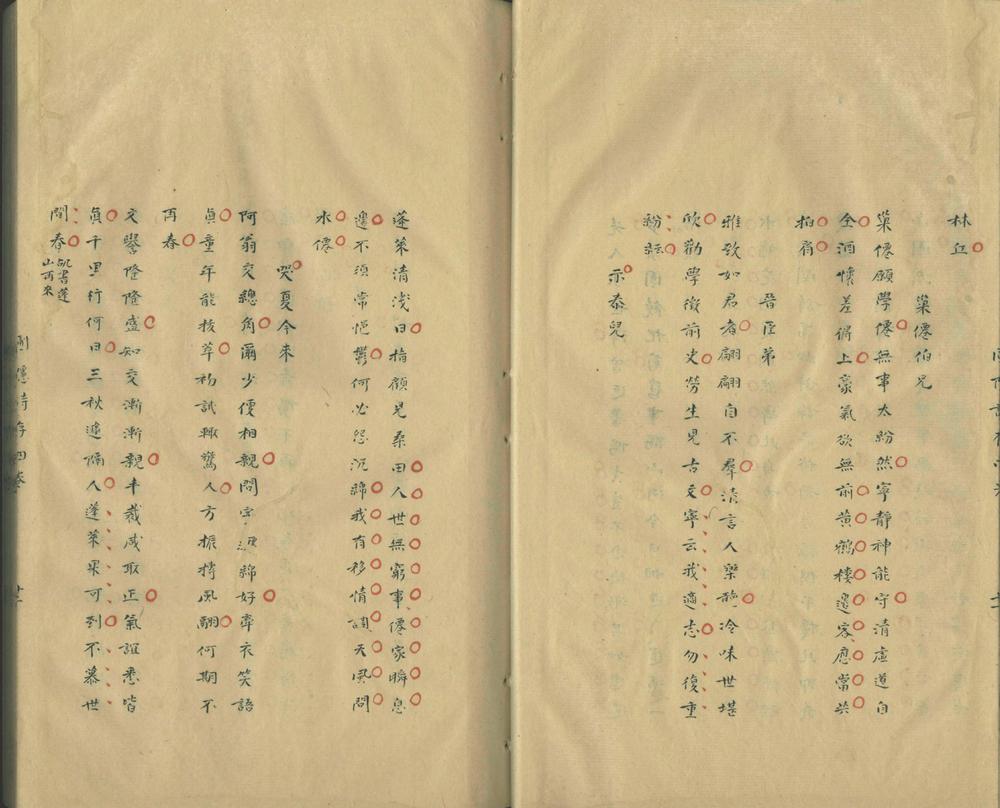 林丘
巢僊伯兄
巢僊願學僊無事太紛然寧靜神能守清虛道自
全酒懷差得上豪氣欲無前黃鶴樓邊客應當共
拍肩
晉臣弟
雅致如君者翩翩自不羣清言人樂聽冷味世堪
欣勸學徵前史勞生見古文寧云我適志勿復重
紛紜
示泰兒
蓬萊清淺日指顧見桑田人世無窮事僊家瞬息
邊不須常悒鬱何必怨沉綿我有移情調天風問
水僊
哭夏今來
阿翁交總角爾少便相親問字 綿好牽衣笑語
真童年能拔萃初試輒驚人方振摶風翮何期不
再春
文譽隆隆盛知交漸漸親丰裁咸取正氣誼悉皆
真千里行何日三秋遽隔人蓬萊果可到不慕世
間春
山再來
僊詩存四卷